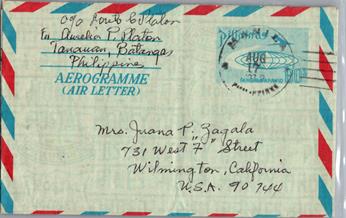 c/o Renato C. Platon
Fr. Amelia P. Platon
Tanauan, Batangas
Philippines
AEROGRAMME
(AIR LETTER)
MANILA
AUG
17
PHILIPPINES
Mrs. Juana P. Zagala
731 West "F" Street
Wilmington, California
U.S.A. 90744